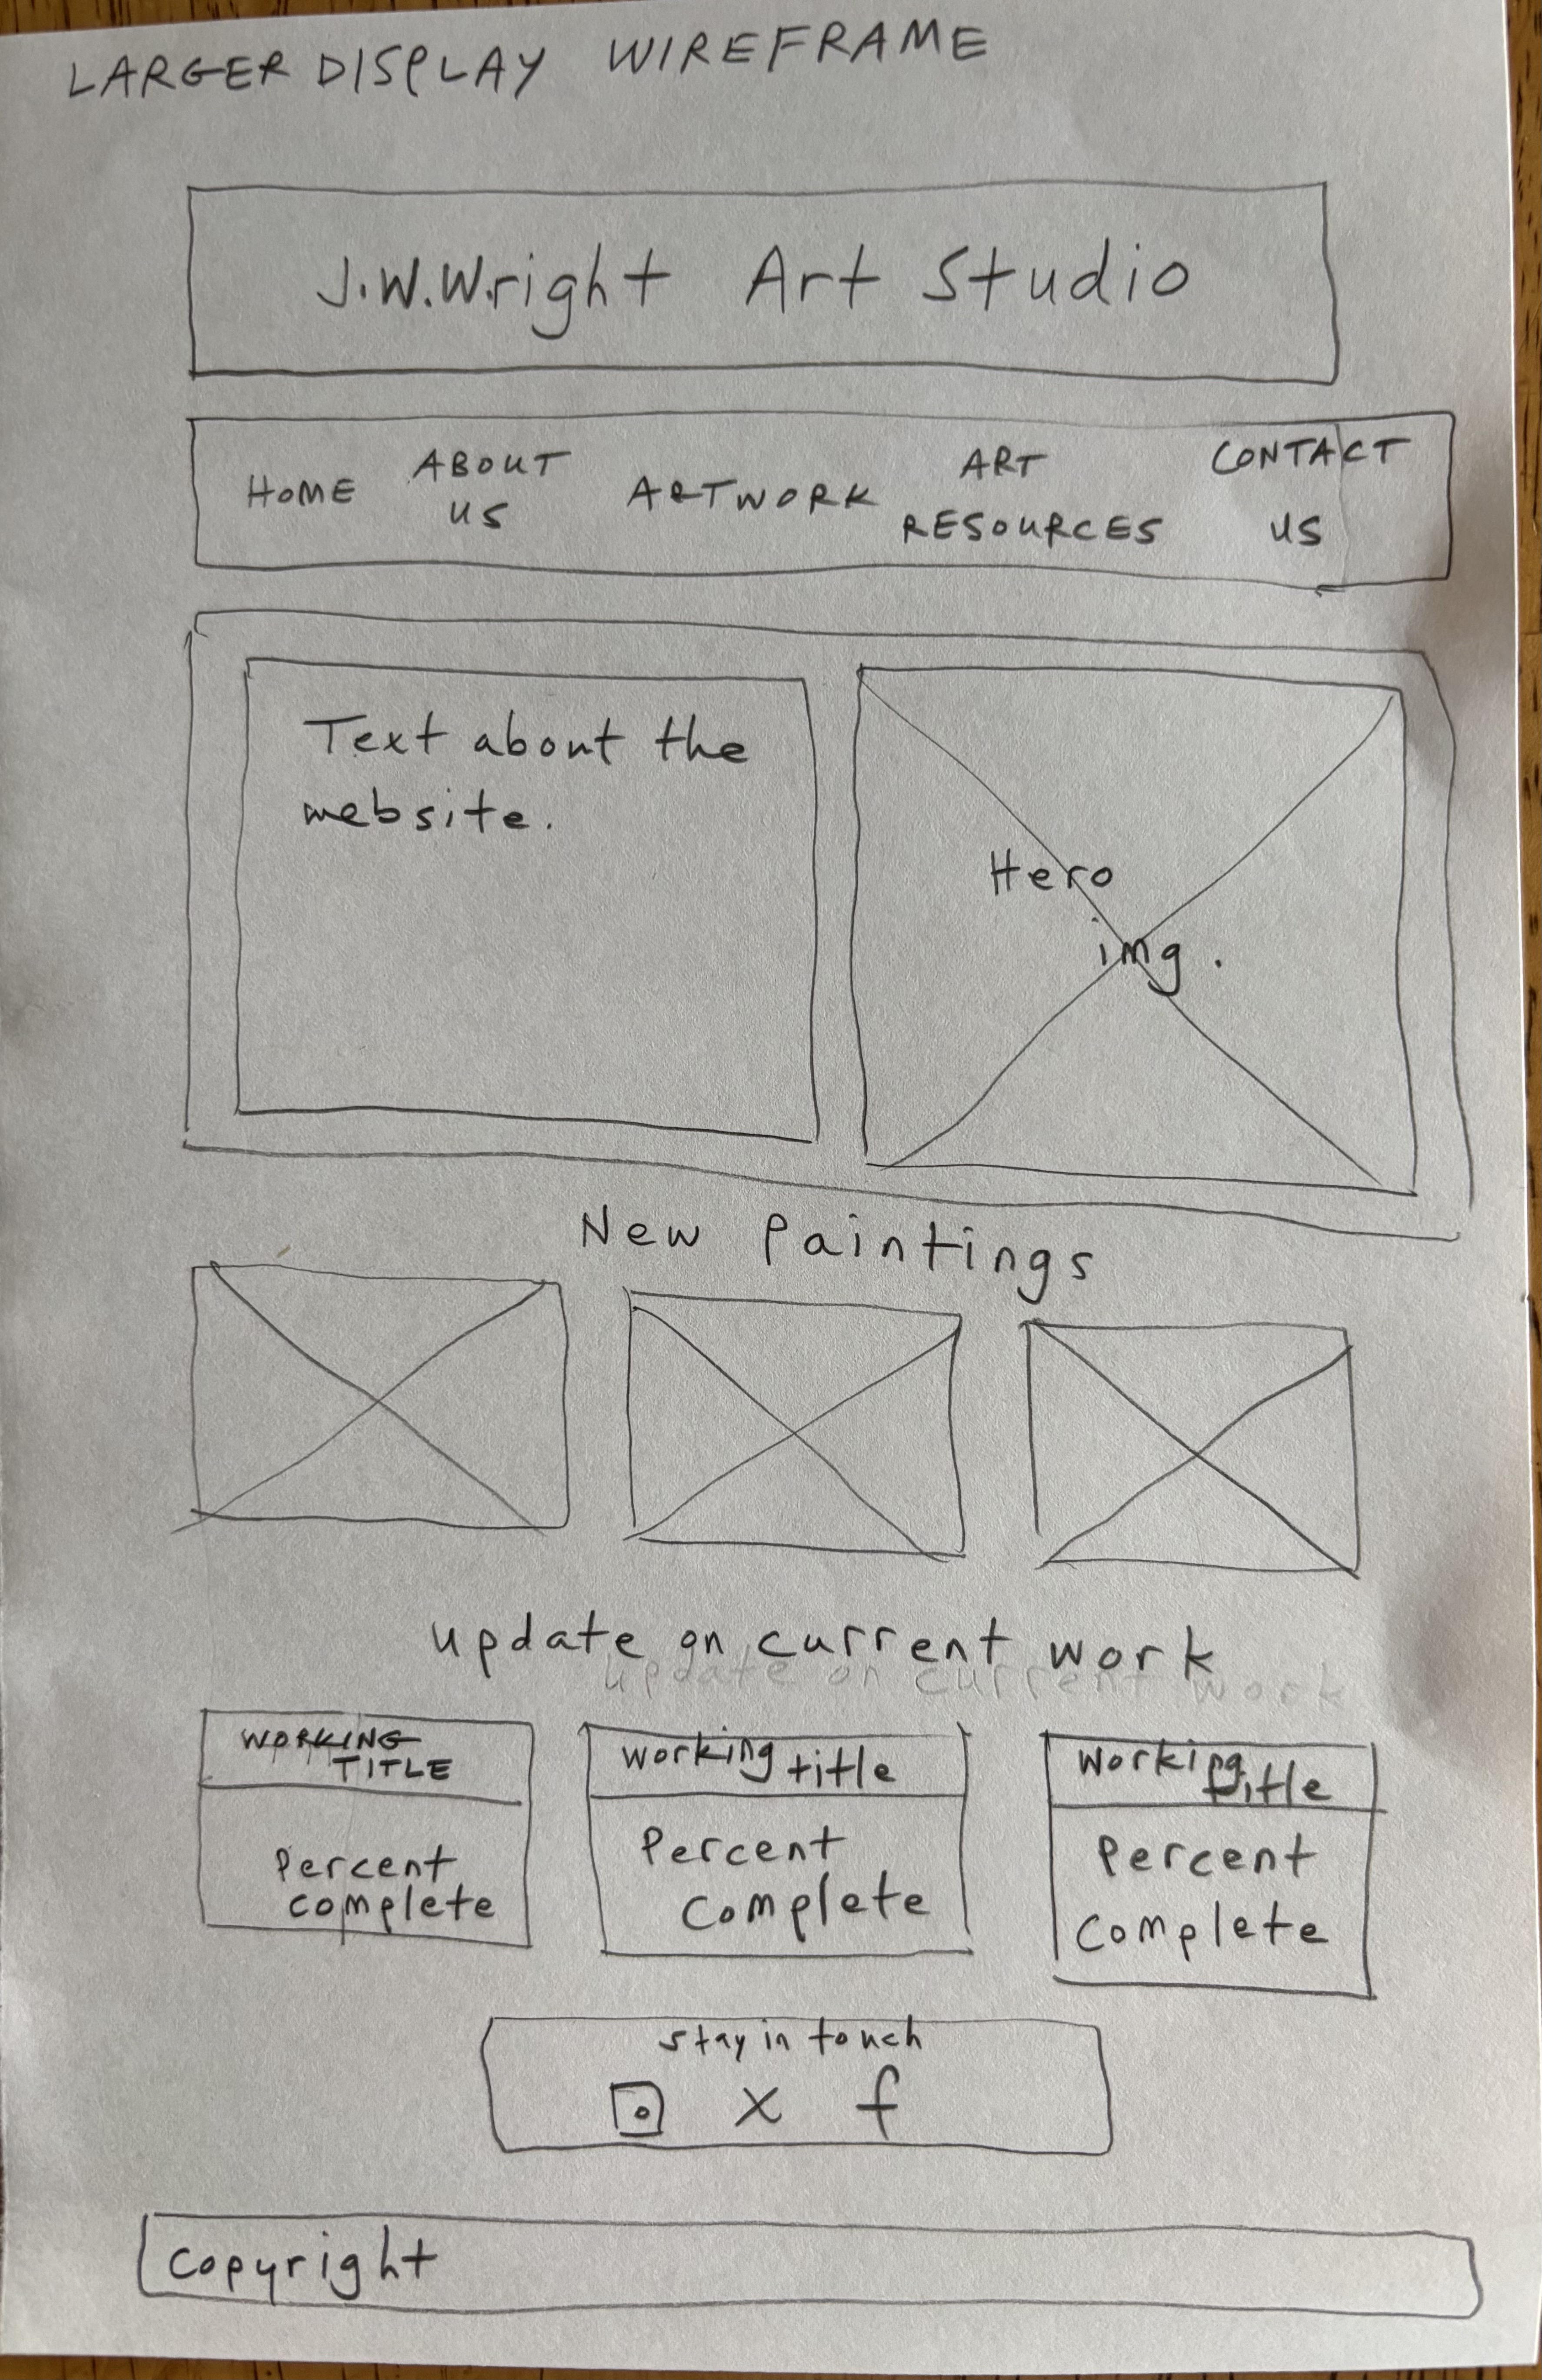 LARGER DISPLAY WIREFRAME
J.W.Wright Art Studio
HOME
ABOUT
US
ARTWORK
ART
RESOURCES
CONTACT
US
Text about the
website.
Hero
img.
New Paintings
update on current work
update on current work
WORKING
TITLE
Percent
complete
working title
Percent
Complete
Working
title
Percent
Complete
stay in touch
X f
copyright